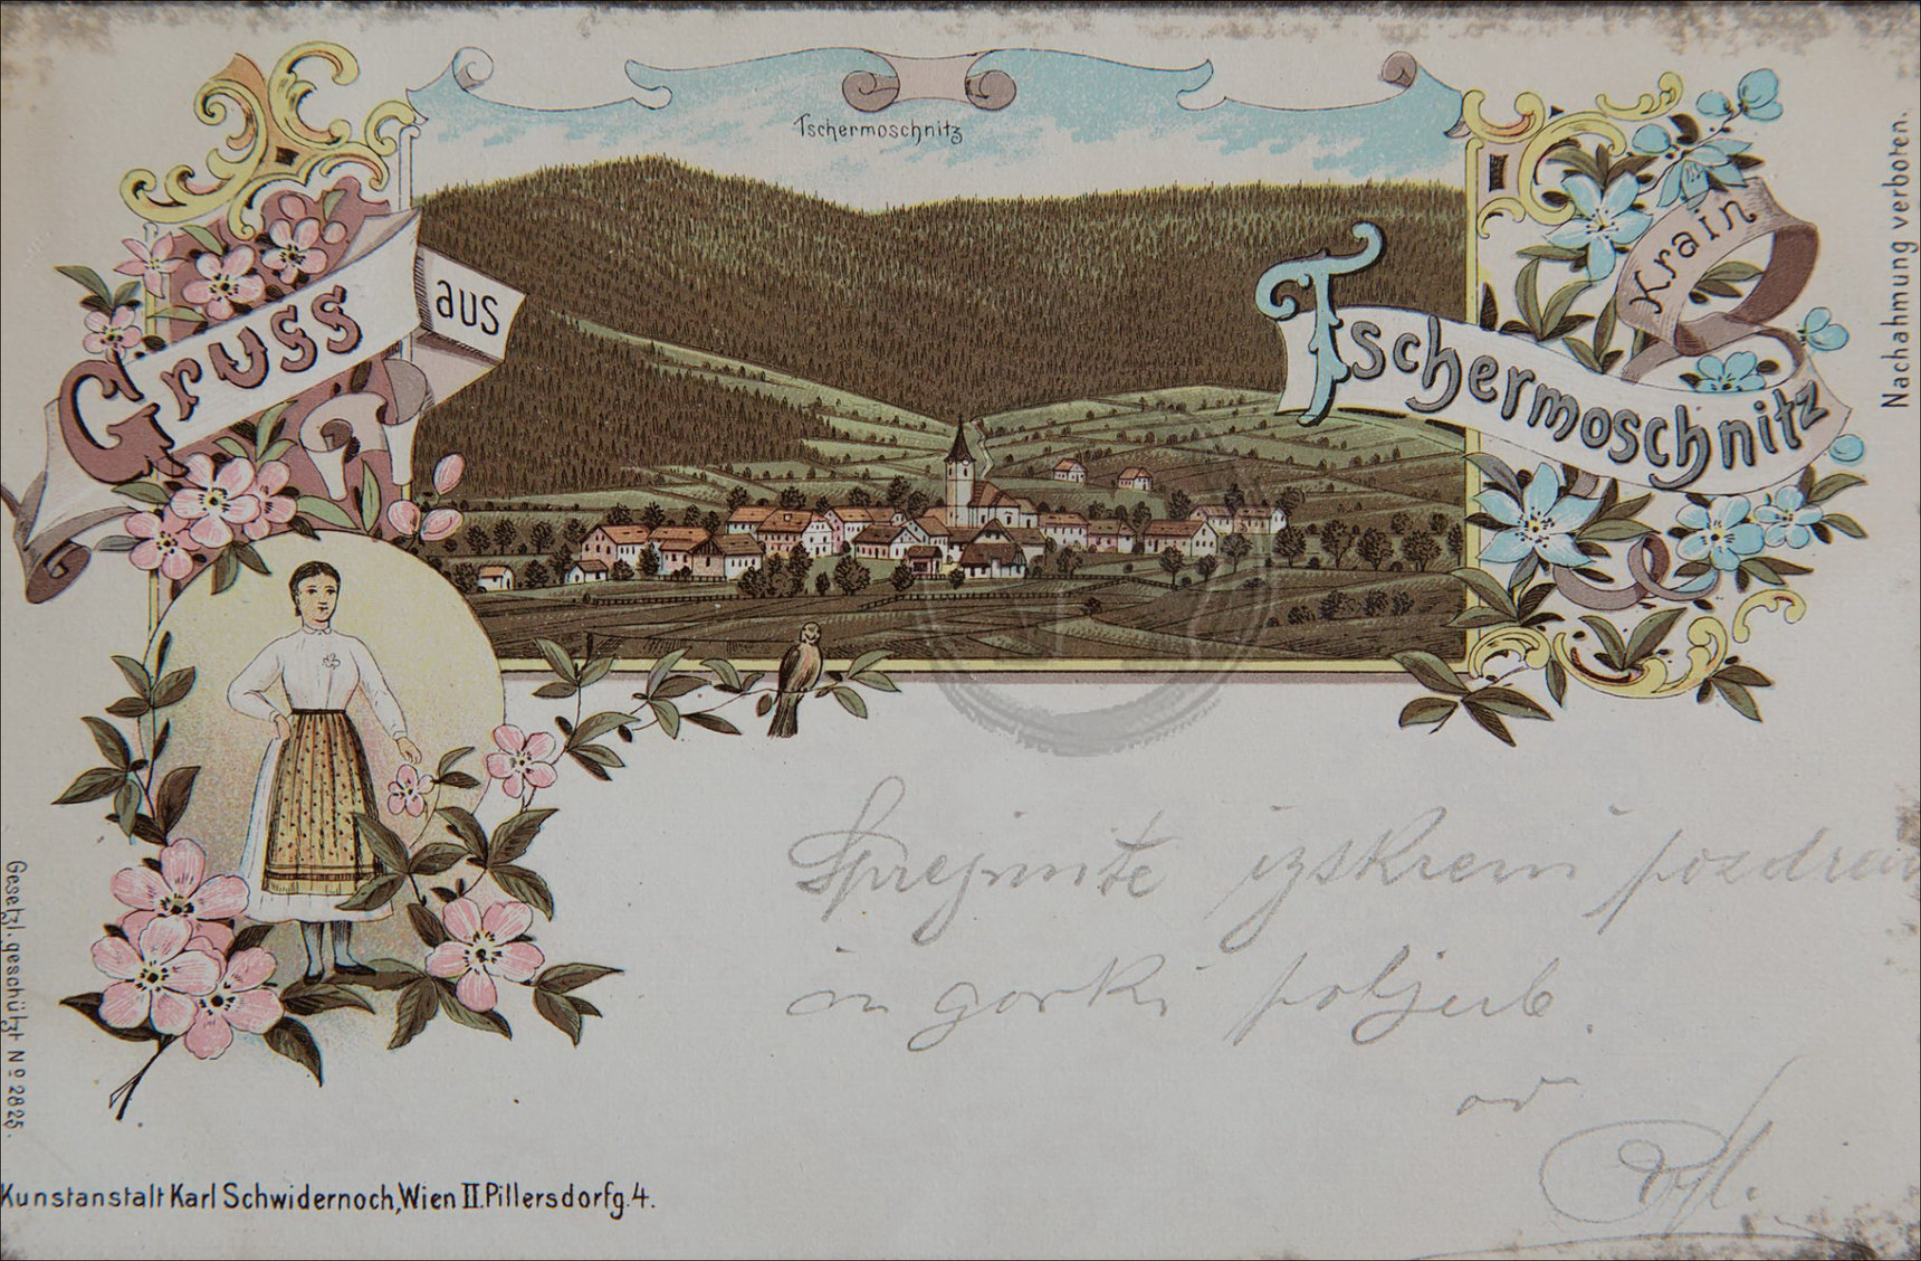 Tschermoschnitz
Gruss aus
Tschermoschnitz
Krain
Nachahmung verboten.
Gesetzl. geschützt Nº 2825.
Sprejmite izskreni pozdrav
in gorki poljub.
od
Kunstanstalt Karl Schwidernoch, Wien II. Pillersdorfg. 4.